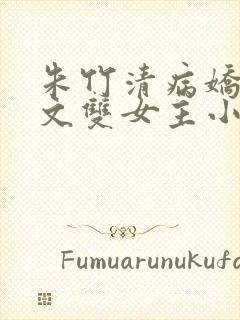 朱竹清病嬌
文雙女主小
Fumuarunukufo